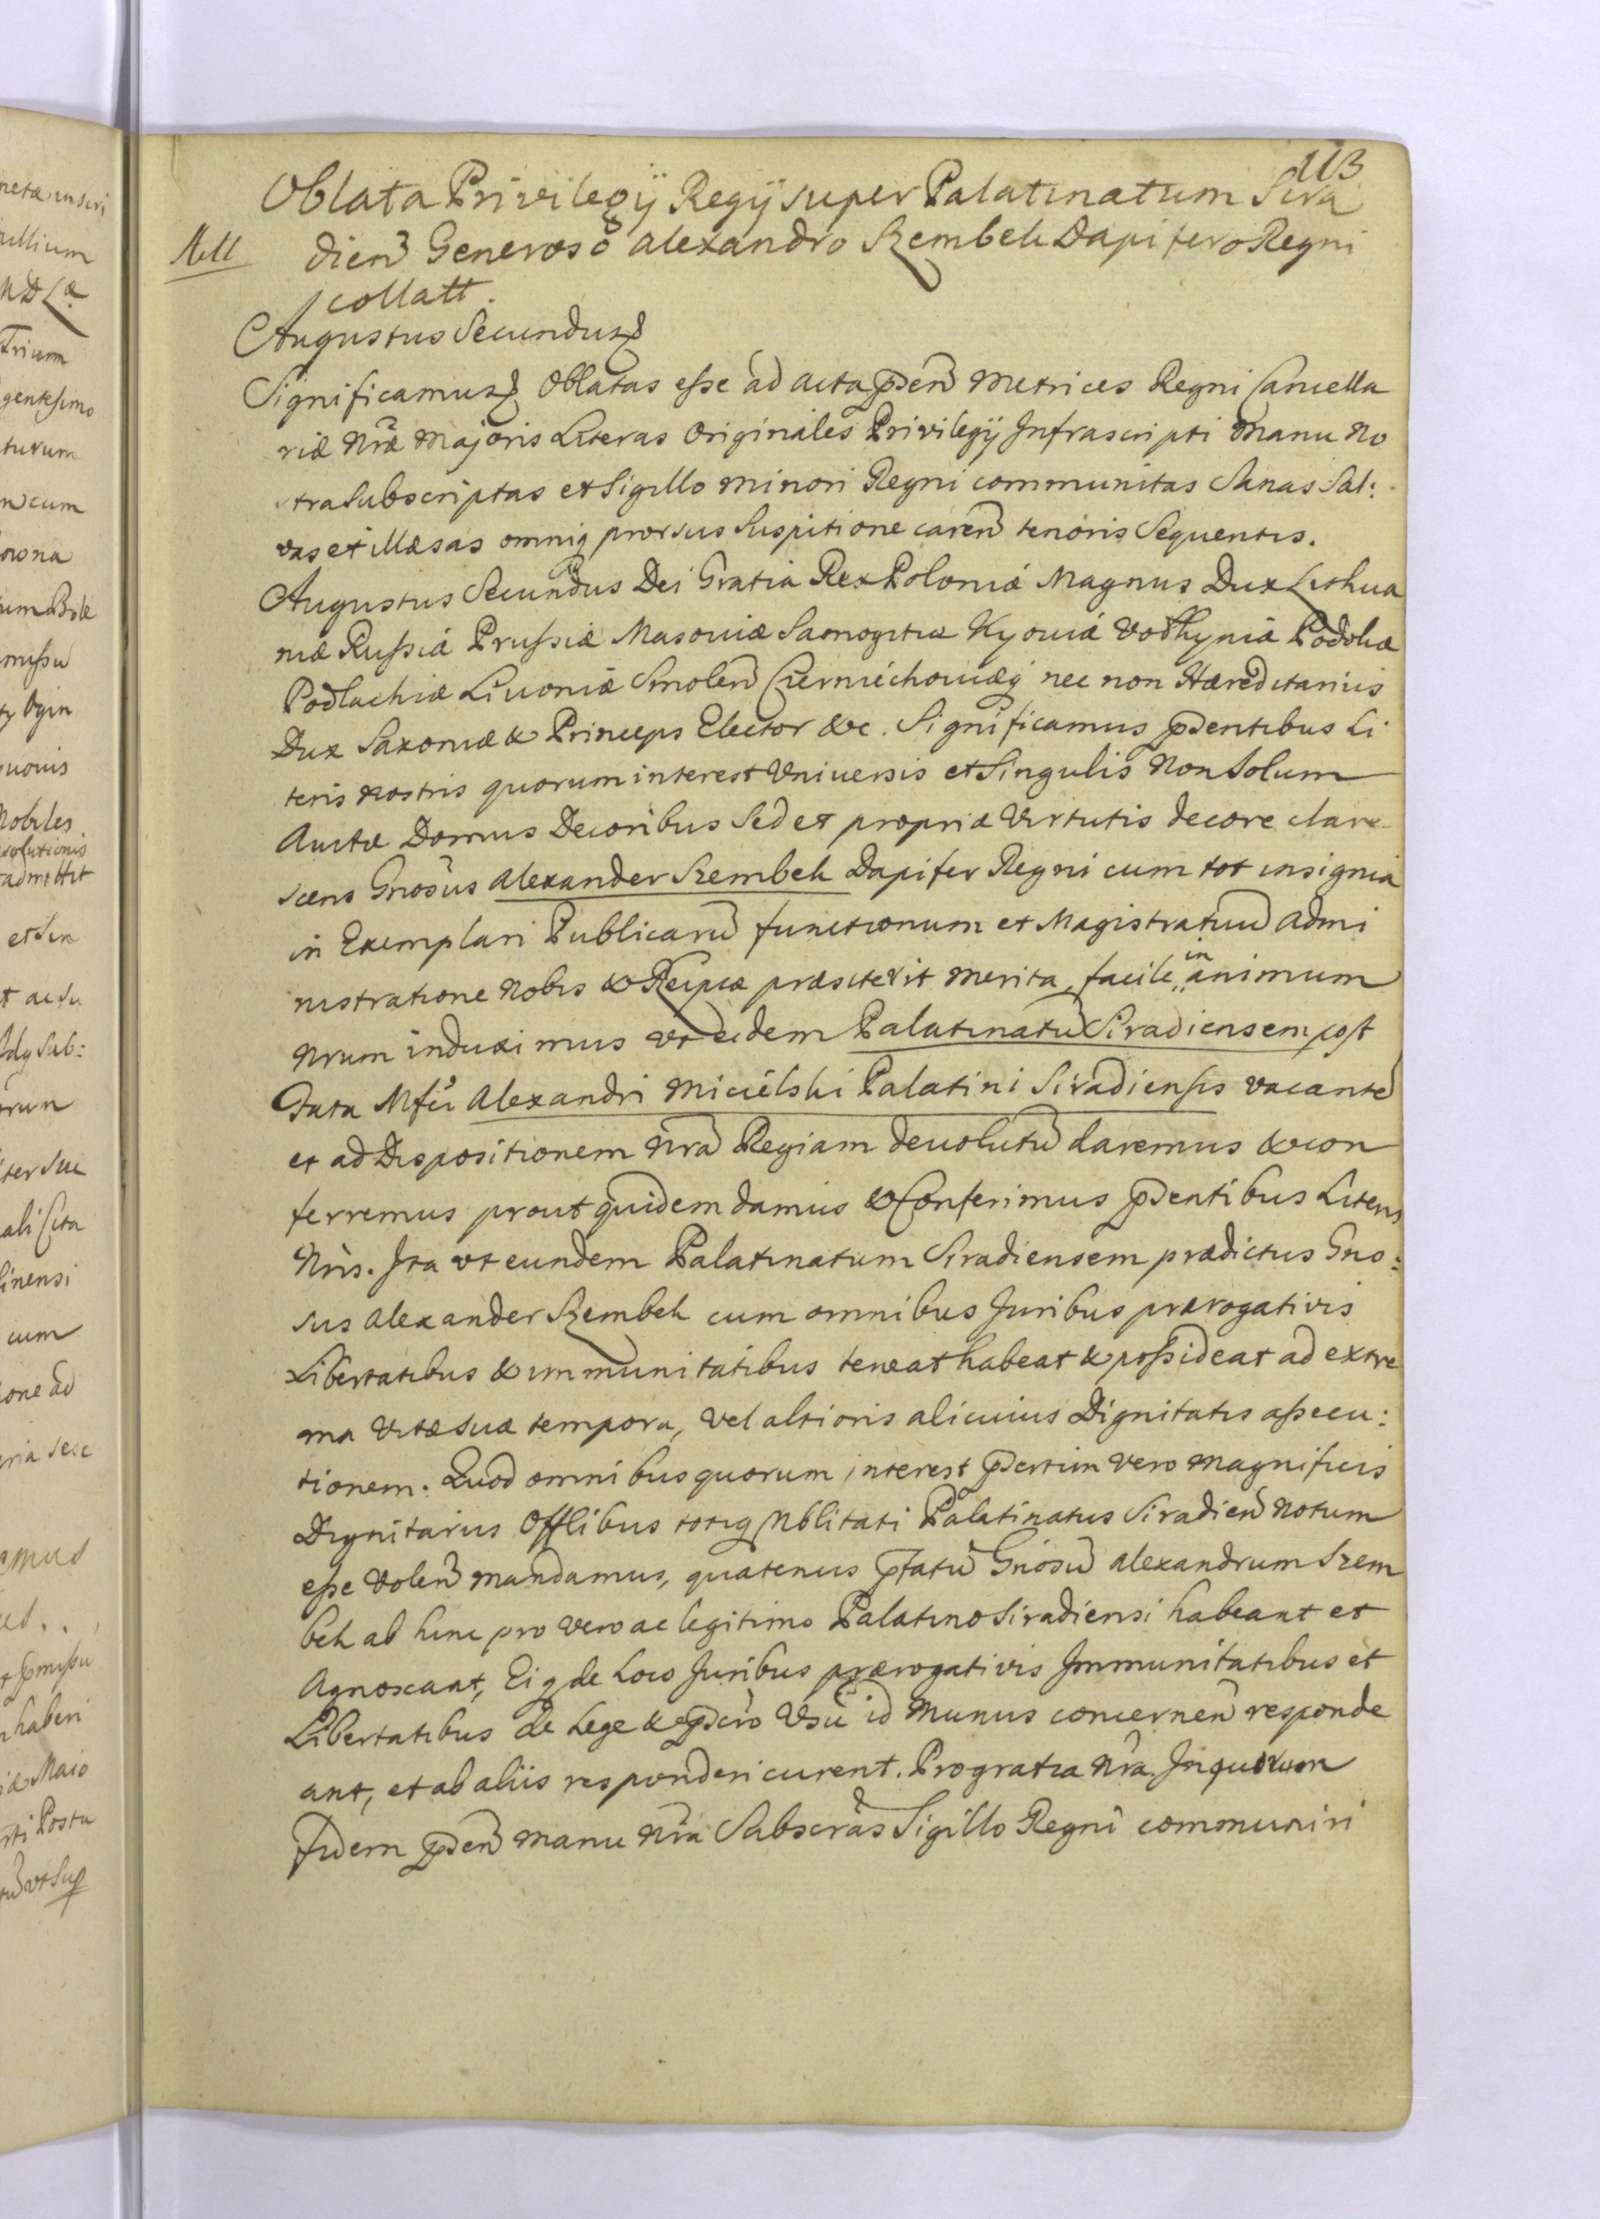 113
Oblata Privilegÿ Regÿ super Palatinatum Sira
dien Generoso Alexandro Szembek Dapifero Regni
collatt.
Augustus Secundus
Significamus Oblatas esse ad acta pden Metrices Regni Cancella
riæ Nræ Majoris Literas Originales Privilegÿ Infrascripti Manu No
stra Subscriptas et Sigillo minori Regni communitas Sanas Sal:
vas et illæsas omniq prorsus Suspitione caren tenoris Sequentis.
Augustus Secundus Dei Gratia Rex Poloniæ Magnus Dux Lithua
niæ Russiæ Prussiæ Masoviæ Samogitiæ Kyoviæ Volhyniæ Podoliæ
Podlachiæ Livoniæ Smolen Czerniechoviæq nec non Hæreditarius
Dux Saxoniæ & Princeps Elector &c. Significamus pdentibus Li
teris nostris quorum interest Universis et Singulis Non Solum
Avitæ Domus Decoribus Sed et propriæ Virtutis decore clare
scens Gnosus Alexander Szembek Dapifer Regni cum tot insignia
in Exemplari Publicaru functionum et Magistratuu Admi
nistratione Nobis & Reipcæ præsiterit merita, facile in animum
Nrum induximus ut eidem Palatinatu Siradiensem post
Fata Mfci Alexandri Micielski Palatini Siradiensis vacante
et ad Dispositionem Nra Regiam devolutu daremus & con
ferremus prout quidem damus & Conferimus pdentibus Literis
Nris. Ita ut eundem Palatinatum Siradiensem prædictus Gno:
sus Alexander Szembek cum omnibus Juribus prærogativis
Libertatibus & immunitatibus teneat habeat & possideat ad extre
ma Vitæ Suæ tempora, vel altioris alicuius Dignitatis assecu:
tionem. Quod omnibus quorum interest pdertim vero Magnificis
Dignitarius Offlibus totiq Nblitati Palatinatus Siradien Notum
esse Volen mandamus, quatenus pfatu Gnosu Alexandrum Szem
bek ab hinc pro vero ac legitimo Palatino Siradiensi habeant et
Agnoscant, Eiq de Loco Juribus prærogativis Immunitatibus et
Libertatibus de Lege & Usu id Munus concernen responde
ant, et ab aliis responderi curent. Pro gratia Nra. In quorum
fidem pden manu Nra Subscras Sigillo Regni communiri